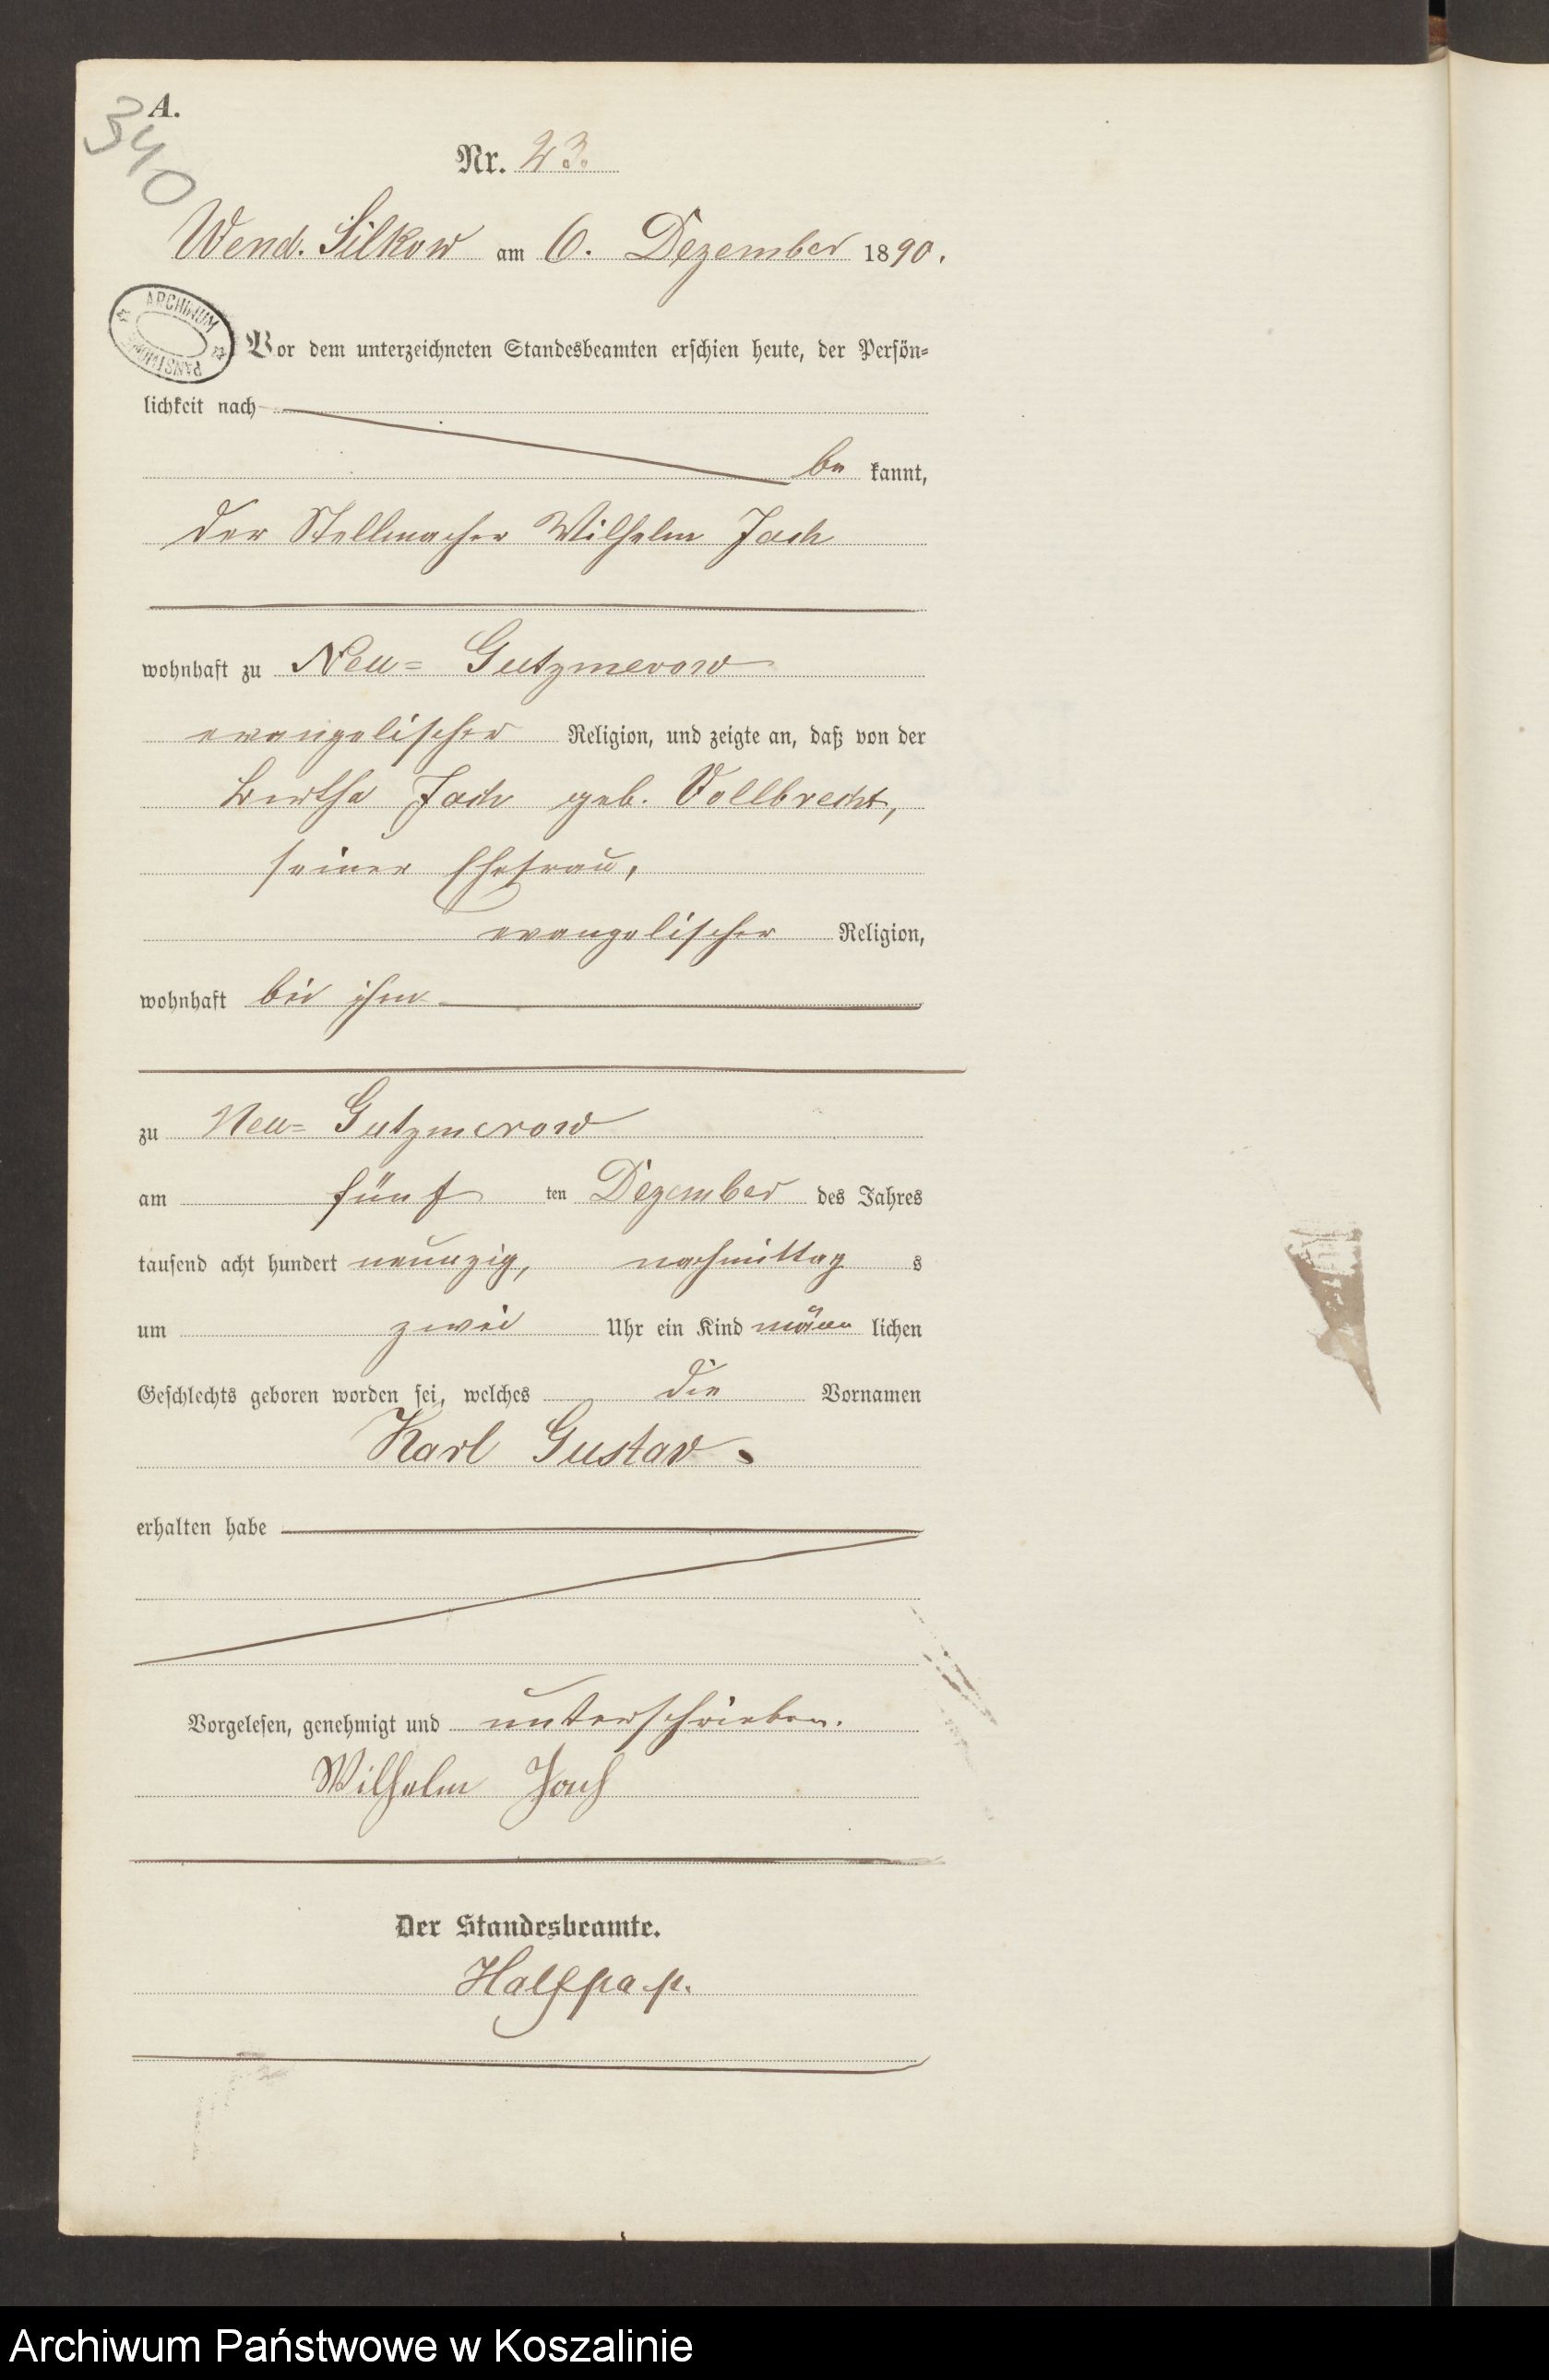 A.
340
Nr. 23.
Wend. Silkow am 6. Dezember 1890.
ARCHIWUM
PAŃSTWOWE
Vor dem unterzeichneten Standesbeamten erschien heute, der Persön=
lichkeit nach
be kannt,
der Stellmacher Wilhelm Jach
wohnhaft zu Neu= Gutzmerow
evangelischer Religion, und zeigte an, daß von der
Bertha Jach geb. Vollbrecht,
seiner Ehefrau,
evangelischer Religion,
wohnhaft bei ihm
zu Neu= Gutzmerow
am fünf ten Dezember des Jahres
tausend acht hundert neunzig, nachmittag s
um zwei Uhr ein Kind männ lichen
Geschlechts geboren worden sei, welches die Vornamen
Karl Gustav.
erhalten habe
Vorgelesen, genehmigt und unterschrieben.
Wilhelm Jach
Der Standesbeamte.
Halfpap.
Archiwum Państwowe w Koszalinie